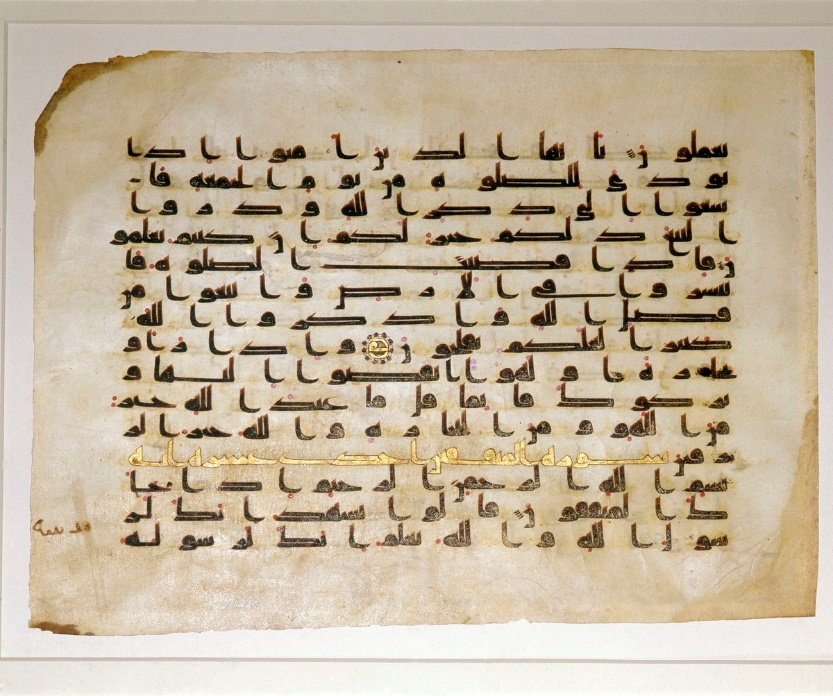 تعملون يايها الذين امنوا اذا
نودي للصلوة من يوم الجمعة فا
سعوا الى ذكر الله وذروا
البيع ذلكم خير لكم ان كنتم تعلمو
ن فاذا قضيت الصلوة فا
نتشروا في الارض وابتغوا من
فضل الله واذكروا الله
كثيرا لعلكم تفلحون واذا راو
ا تجرة او لهوا انفضوا اليها و
تركوك قائما قل ما عند الله خير
من اللهو ومن التجرة والله خير الر
زقين سورة المنفقين احدى عشره ايه
بسم الله الرحمن الرحيم اذا جا
ك المنفقون قالوا نشهد انك لر
سول الله والله يعلم انك لرسوله